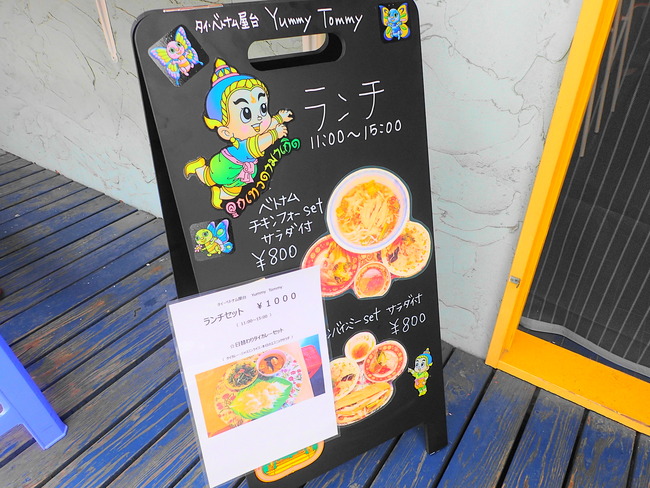 タイ・ベトナム屋台 Yummy Tommy
ランチ
11:00〜15:00
ลูกเทวดามาเกิด
ベトナム
チキンフォーset
サラダ付
¥800
ンバイミーset サラダ付
¥800
タイ・ベトナム屋台 Yummy Tommy
ランチセット ￥１０００
( 11:00~15:00 )
☆日替わりタイカレーセット